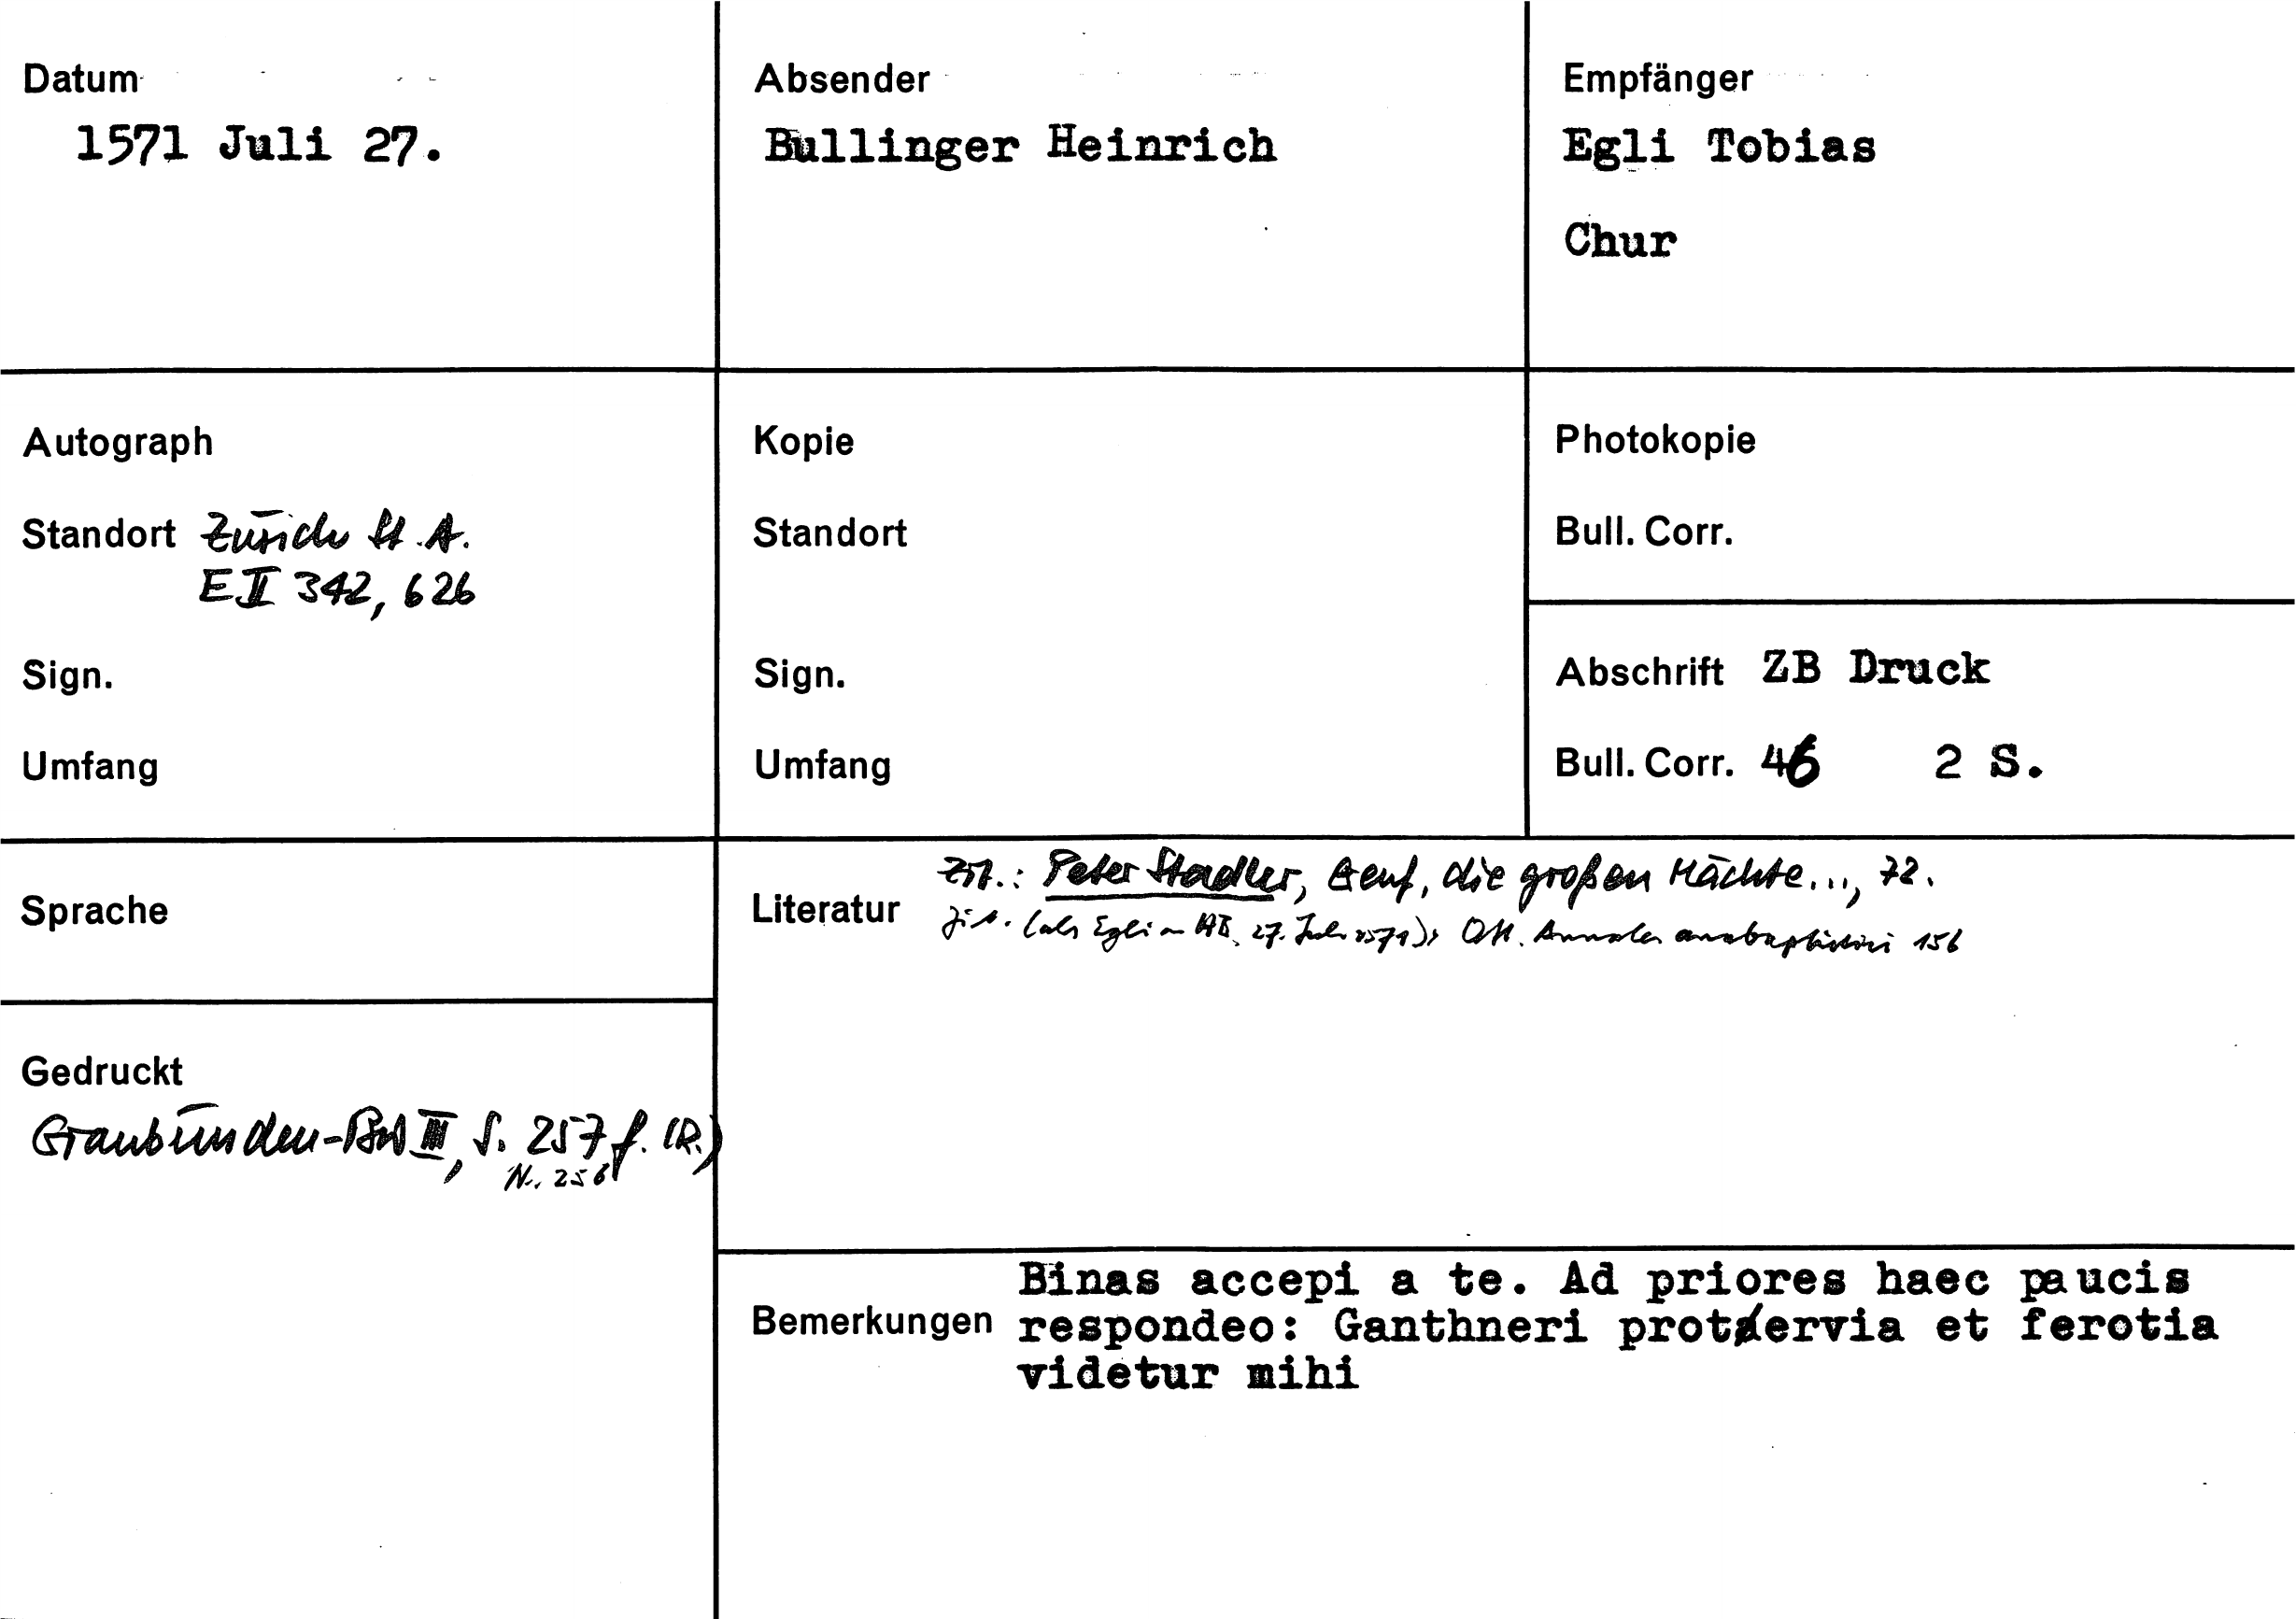 Datum
1571 Juli 27.
Absender
Bullinger Heinrich
Empfänger
Egli Tobias
Chur
Autograph
Standort Zürich St.A.
E II 342, 626
Sign.
Umfang
Kopie
Standort
Sign.
Umfang
Photokopie
Bull. Corr.
Abschrift ZB Druck
Bull. Corr. 46 2 S.
Sprache
Gedruckt
Graubünden-BW III, S. 257 f. (R.)
Nr. 256
Literatur
Zit.: Peter Stadler, Genf, die großen Mächte..., 72.
zit. (als Egli an HB, 27. Juli 1571): Ott. Annales anabaptistici 156
Bemerkungen
Binas accepi a te. Ad priores haec paucis
respondeo: Ganthneri protervia et ferotia
videtur mihi